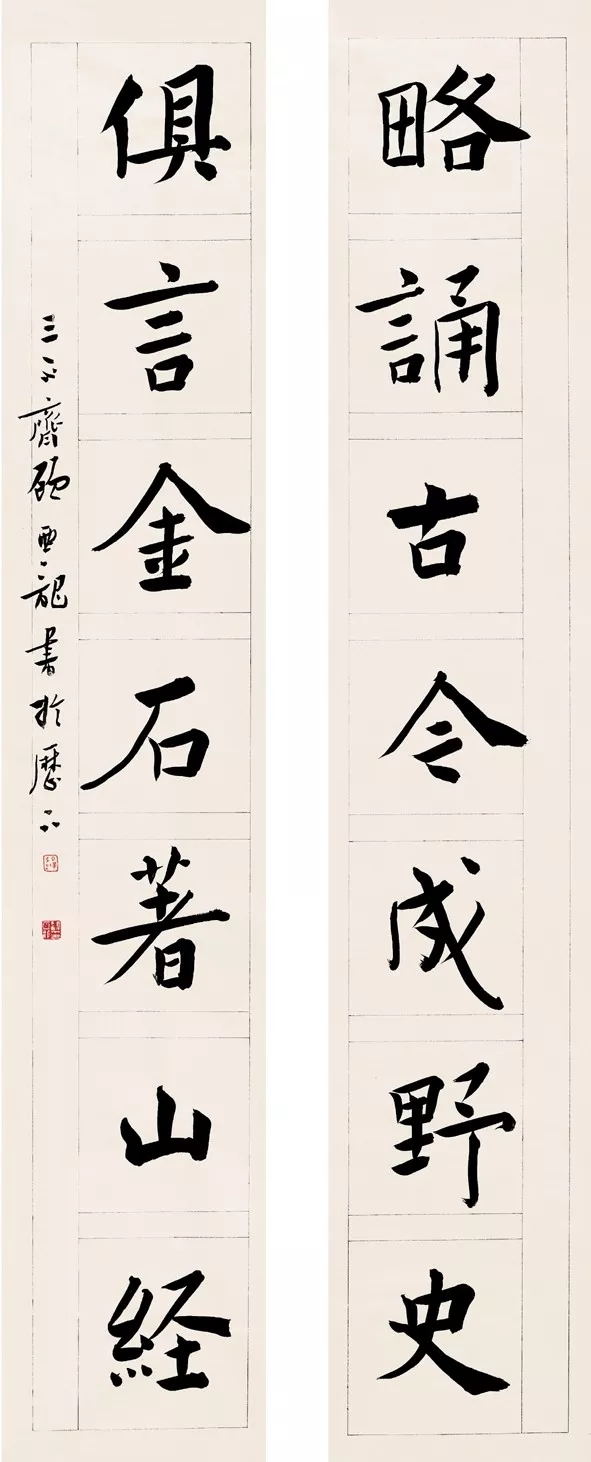 略誦古今成野史
俱言金石著山経
三不齋顧亞龍書於歷下